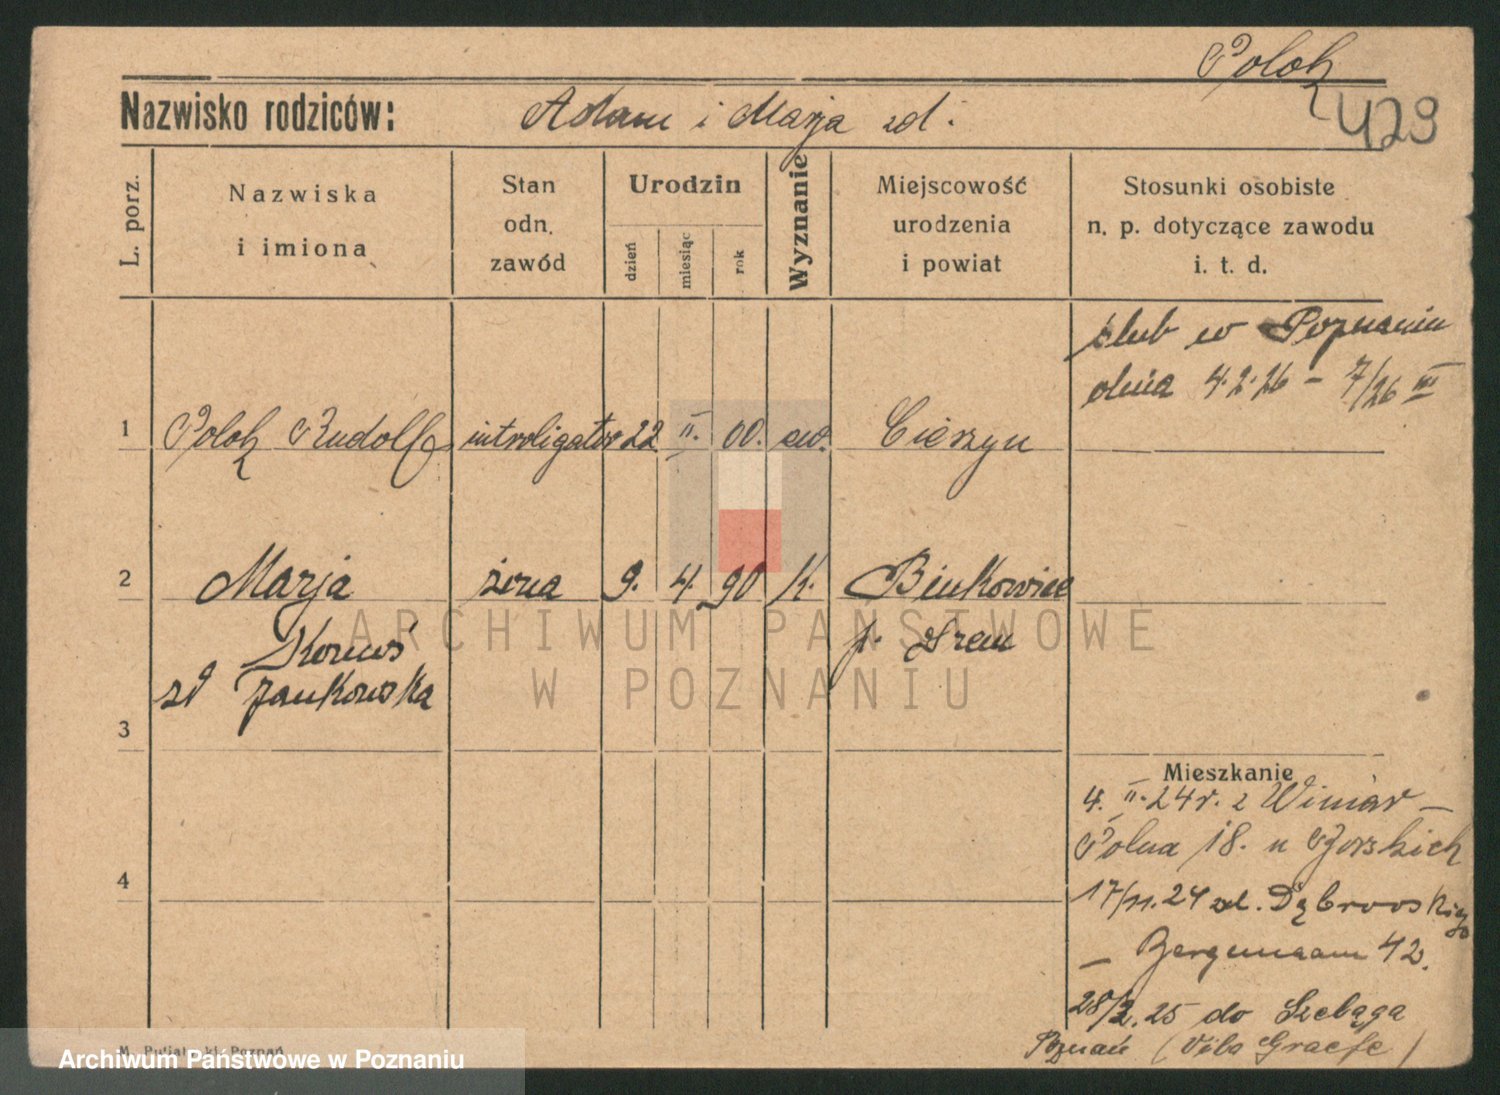 Polok
Nazwisko rodziców: Adam i Marja zd.
429
L. porz.
Nazwiska
i imiona
Stan
odn.
zawód
Urodzin
dzień
miesiąc
rok
Wyznanie
Miejscowość
urodzenia
i powiat
Stosunki osobiste
n. p. dotyczące zawodu
i. t. d.
ślub w Poznaniu
dnia 4.2.26 - 7/26 III
1 Polok Rudolf introligator 22 II. 00. ew. Cieszyn
2 Marja żona 9. 4. 90 k.
p. Śrem
zd Jankowska
3
Mieszkanie
4. II. 24 r. z Winiar -
Polna 18. u
4
17/11.24 zd. Dąbrowskiego
- Bergmaam 42.
28/2.25 do Szeląga
Poznań (Villa Graefe)
ARCHIWUM PAŃSTWOWE
W POZNANIU
Poznań
Archiwum Państwowe w Poznaniu